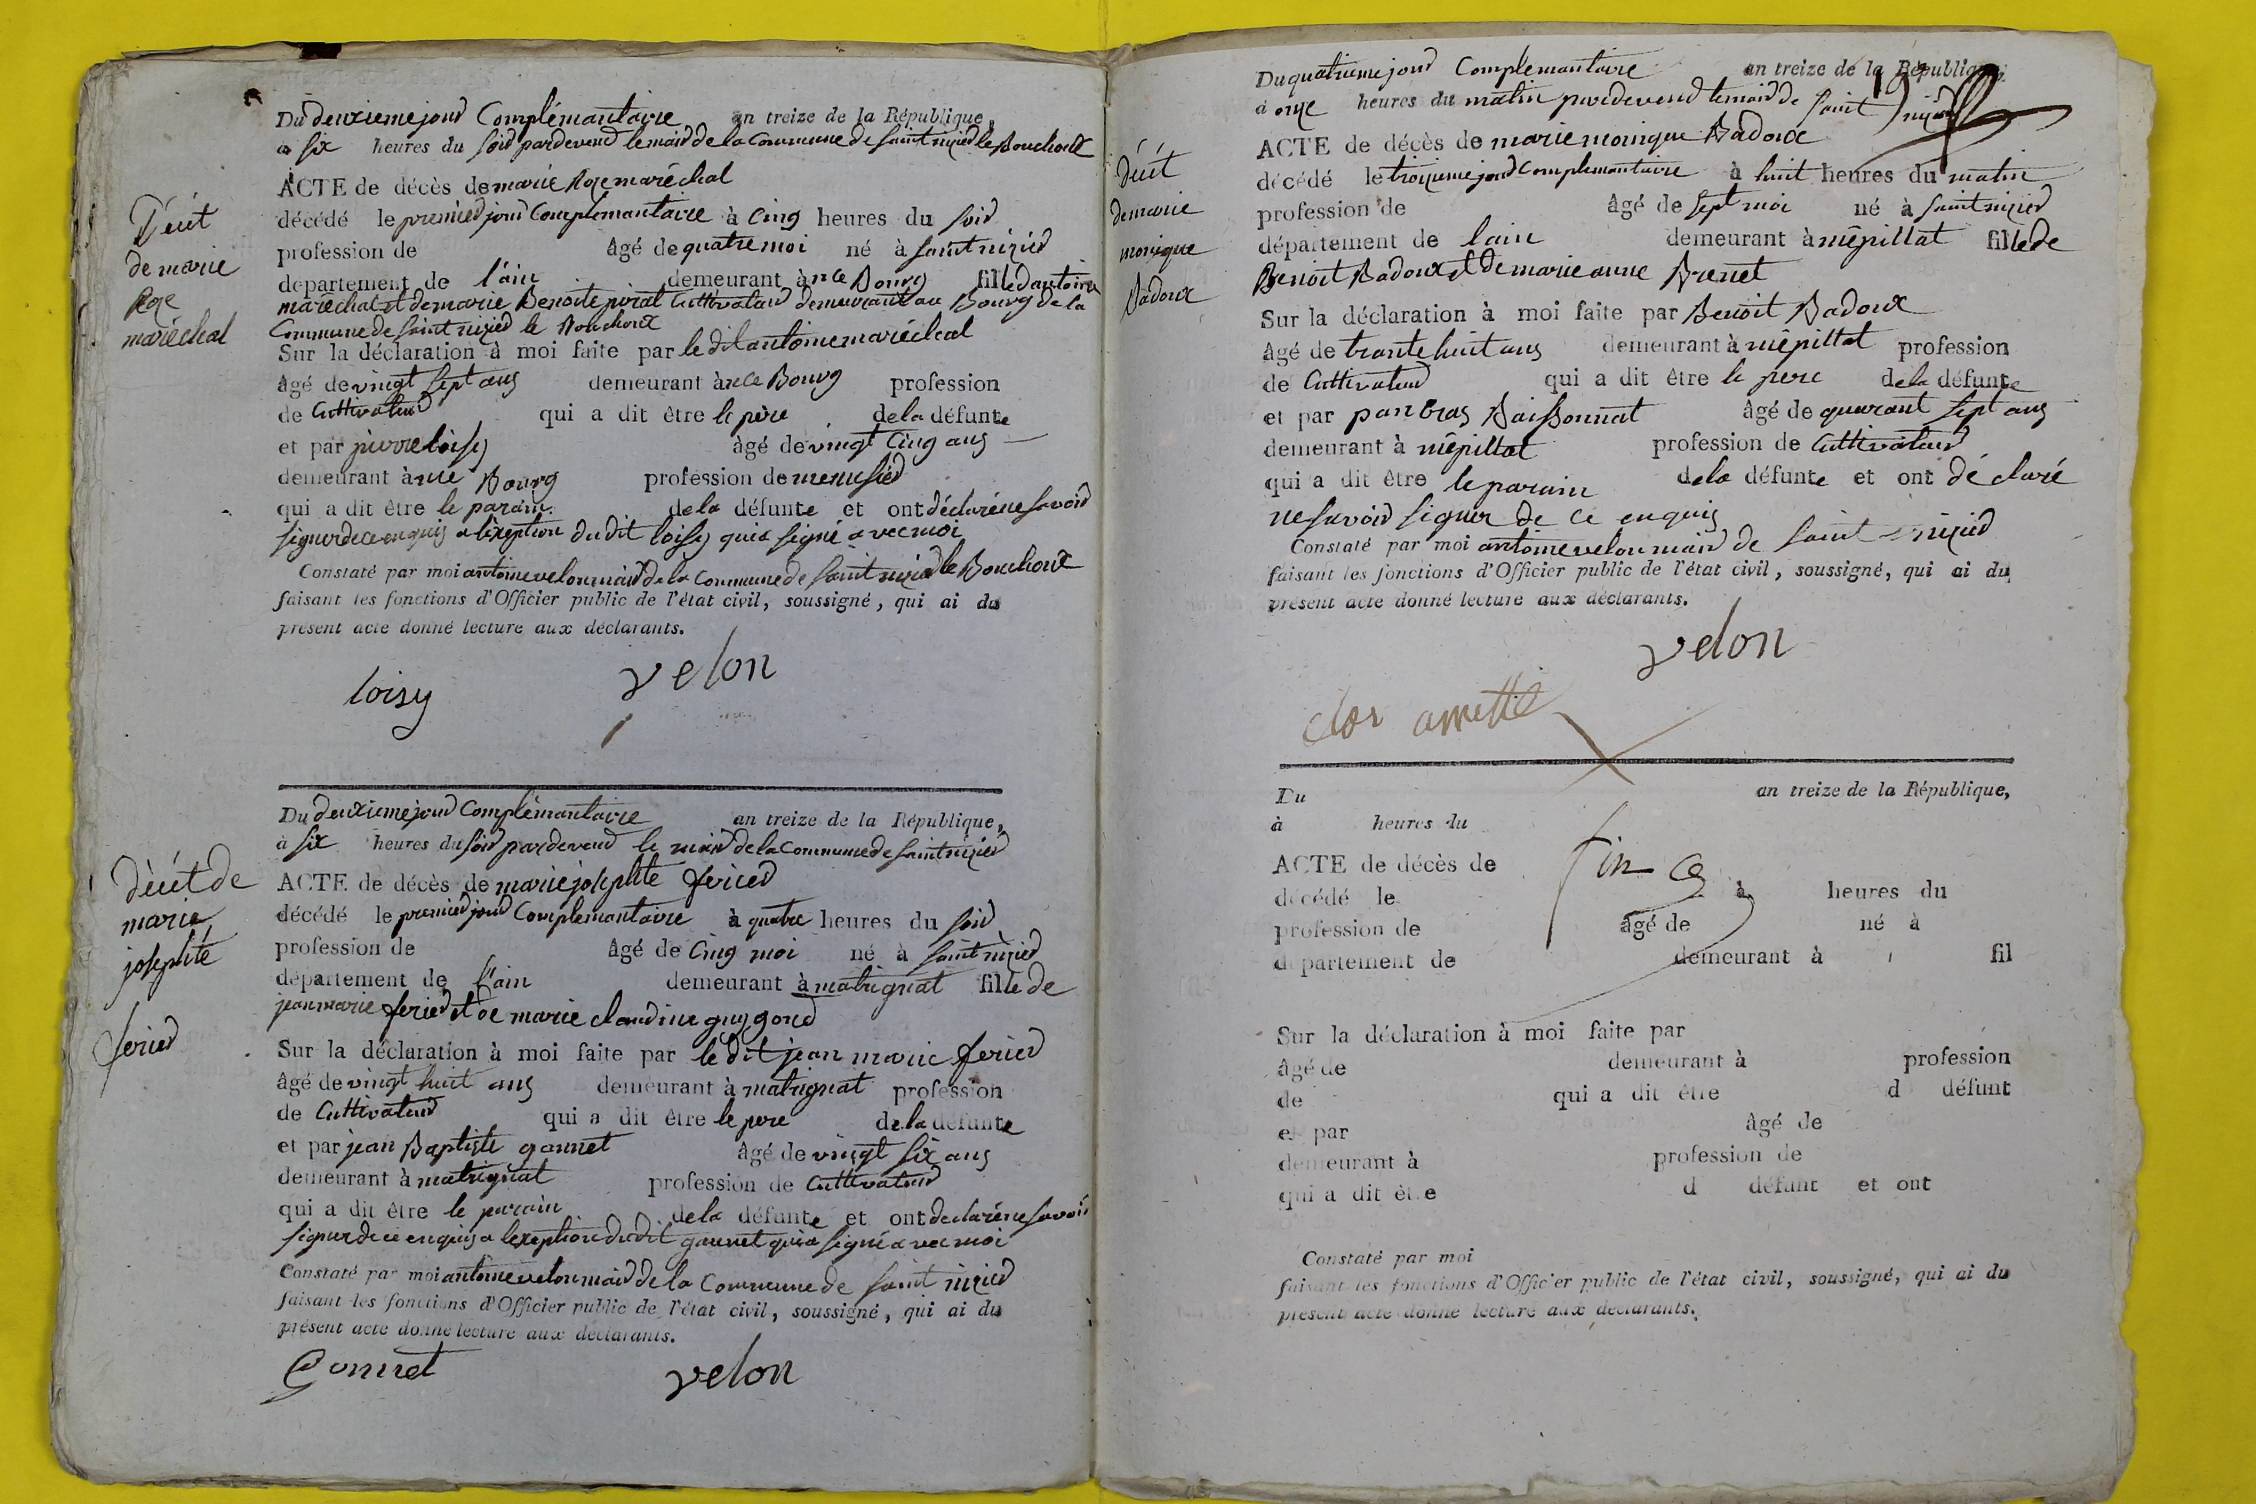 Du deuxieme jour Complémantaire an treize de la République,
a six heures du soir pardevend le maire de la Commune de saint nizier le Bouchoux
ACTE de décès de marie Roze maréchal
décédé le premier jour Complémantaire à Cinq heures du soir
profession de âgé de quatre moi né à saint nizier
département de l'ain demeurant à le Bourg fille d'antoine
maréchal et de marie Benoite Cultivateur demeurant au Bourg de la
Commune de saint nizier le Bouchoux
Sur la déclaration à moi faite par le dit antoine maréchal
âgé de vingt sept ans demeurant à le Bourg profession
de Cultivateur qui a dit être le père de la défunte
et par pierre loisy âgé de vingt Cinq ans
demeurant à Bourg profession de menusier
qui a dit être le parain de la défunte et ont déclaré ne savoir
signer de ce enquis a l'exeption du dit loisy qui a signé avec moi
Constaté par moi antoine velon maire de la Commune de saint nizier le Bouchoux
faisant les fonctions d'Officier public de l'état civil, soussigné, qui ai du
présent acte donné lecture aux déclarants.
loisy velon
Décét
de marie
Roze
maréchal
Du deuxieme jour Complémantaire an treize de la République,
à six heures du soir pardevend le maire de la Commune de saint nizier
ACTE de décès de marie josephte ferier
décédé le premier jour Complemantaire à quatre heures du soir
profession de âgé de Cinq moi né à saint nizier
département de l'ain demeurant à matrignat fille de
jean marie ferier et de marie claudine guygond
Sur la déclaration à moi faite par le dit jean marie ferier
âgé de vingt huit ans demeurant à matrignat profession
de Cultivateur qui a dit être le pere de la défunte
et par jean Baptiste gonnet âgé de vingt six ans
demeurant à matrignat profession de Cultivateur
qui a dit être le parain de la défunte et ont declaré ne savoir
signer de ce enquis a l'exeption du dit gonnet qui a signé avec moi
Constaté par moi antoine velon maire de la Commune de saint nizier
faisant les fonctions d'Officier public de l'état civil, soussigné, qui ai du
présent acte donné lecture aux déclarants.
Gonnet velon
décét de
marie
josephte
ferier
Du quatrieme jour Complemantaire an treize de la République,
à onze heures du matin pardevend le maire de saint nizier
ACTE de décès de marie monique Badoux
décédé le troizieme jour Complemantaire à huit heures du matin
profession de âgé de sept moi né à saint nizier
département de lain demeurant à mépillat fille de
Benoit Badoux et de marie anne Brenet
Sur la déclaration à moi faite par Benoit Badoux
âgé de trante huit ans demeurant à mépillat profession
de Cultivateur qui a dit être le pere de la défunte
et par pancras Baissonnat âgé de quarant sept ans
demeurant à mépillat profession de Cultivateur
qui a dit être le parain de la défunte et ont déclaré
ne savoir signer de ce enquis
Constaté par moi antoine velon maire de saint nizier
faisant les fonctions d'Officier public de l'état civil, soussigné, qui ai du
présent acte donné lecture aux déclarants.
velon
clos arretté
décét
de marie
monique
Badoux
Du an treize de la République,
à heures du
ACTE de décès de
décédé le à heures du
profession de âgé de né à
département de demeurant à fil
fin
Sur la déclaration à moi faite par
âgé de demeurant à profession
de qui a dit être d défunt
et par âgé de
demeurant à profession de
qui a dit être d défunt et ont
Constaté par moi
faisant les fonctions d'Officier public de l'état civil, soussigné, qui ai du
présent acte donné lecture aux déclarants.